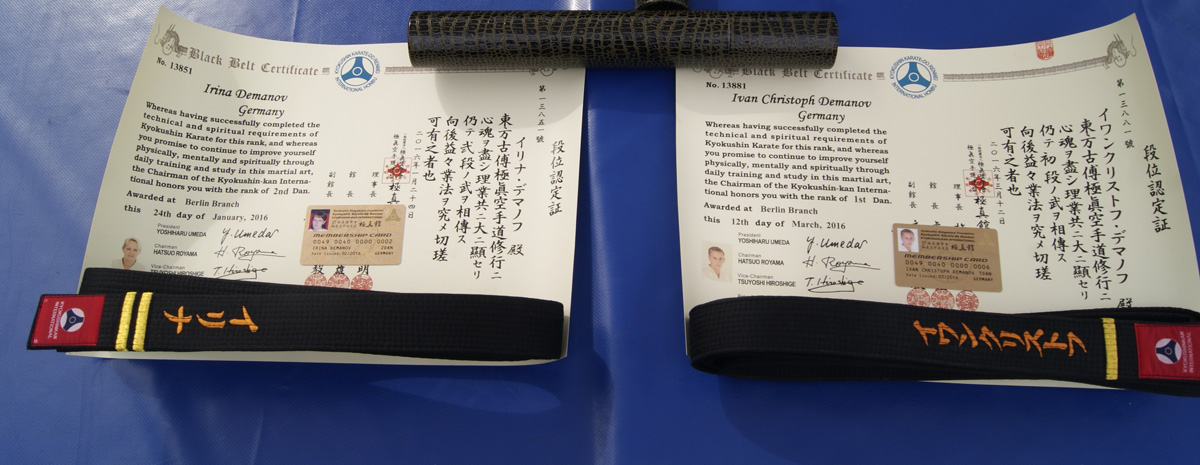 Black Belt Certificate
KYOKUSHIN KARATE-DO RENMEI
INTERNATIONAL HONBU
No. 13851
Irina Demanov
Germany
Whereas having successfully completed the
technical and spiritual requirements of
Kyokushin Karate for this rank, and whereas
you promise to continue to improve yourself
physically, mentally and spiritually through
daily training and study in this martial art,
the Chairman of the Kyokushin-kan Interna-
tional honors you with the rank of 2nd Dan.
Awarded at Berlin Branch
this 24th day of January, 2016
President
YOSHIHARU UMEDA
Chairman
HATSUO ROYAMA
Vice-Chairman
TSUYOSHI HIROSHIGE
Y. Umeda
H. Royama
T. Hiroshige
段位認定証
第一三八五一號
イリナ・デマノフ 殿
東方古傳極眞空手道修行ニ
心魂ヲ盡シ理業共ニ大ニ顯セリ
仍テ弐段ノ武ヲ相傳ス
向後益々業法ヲ究メ切瑳
可有之者也
二〇一六年一月二十四日
極真館
理事長
館長
副館長
MEMBERSHIP CARD
0049 040 0000 0002
IRINA DEMANOV 2DAN
GERMANY
イリナ
Black Belt Certificate
KYOKUSHIN KARATE-DO RENMEI
INTERNATIONAL HONBU
No. 13881
Ivan Christoph Demanov
Germany
Whereas having successfully completed the
technical and spiritual requirements of
Kyokushin Karate for this rank, and whereas
you promise to continue to improve yourself
physically, mentally and spiritually through
daily training and study in this martial art,
the Chairman of the Kyokushin-kan Interna-
tional honors you with the rank of 1st Dan.
Awarded at Berlin Branch
this 12th day of March, 2016
President
YOSHIHARU UMEDA
Chairman
HATSUO ROYAMA
Vice-Chairman
TSUYOSHI HIROSHIGE
Y. Umeda
H. Royama
T. Hiroshige
段位認定証
第一三八八一號
イワンクリストフ・デマノフ 殿
東方古傳極眞空手道修行ニ
心魂ヲ盡シ理業共ニ大ニ顯セリ
仍テ初段ノ武ヲ相傳ス
向後益々業法ヲ究メ切瑳
可有之者也
二〇一六年三月十二日
極真館
理事長
館長
副館長
MEMBERSHIP CARD
0049 0040 0000 0006
IVAN CHRISTOPH DEMANOV 1DAN
GERMANY
イワンクリストフ